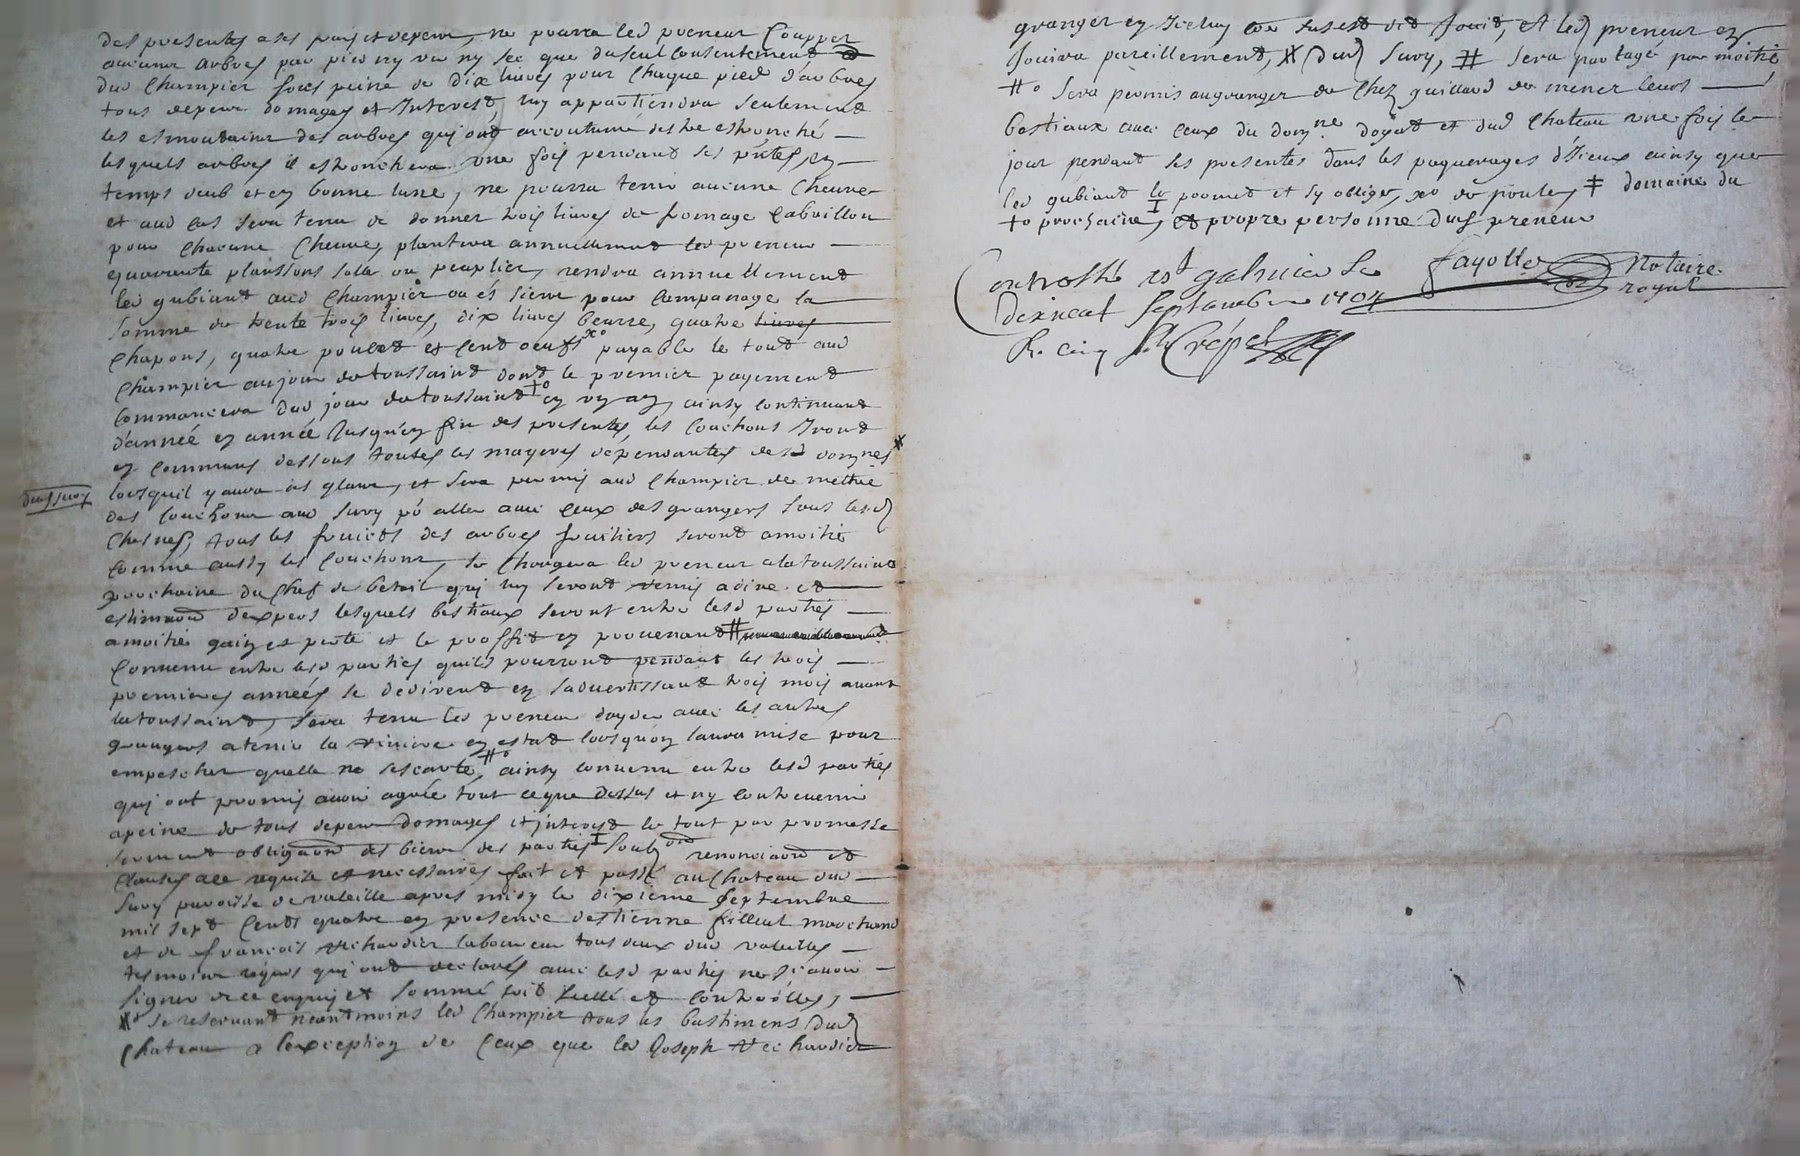 des presentes a ses pairs et depens, ne pourra led preneur Coupper
aucuns arbres par pied ny vif ny sec que du seul Consentement
dud Champier sous peine de dix livres pour Chaque pied d'arbres
tous depens domages et Interest, luy appartiendra seulement
les esmondains des arbres qui ont accoutumé destre estronché
lesquels arbres il estronchera une fois pendant ses pntes, en
temps deub et en bonne lune, ne pourra tenir aucune Chevre
et aud cas sera tenu de donner trois livres de fromage Cabrillon
pour Chacune Chevre, plantera annuellement led preneur
quarante planssons solle ou peuplier, rendra annuellement
led gubiant aud Champier ou és siens pour Companage la
somme de trente trois livres, dix livres beurre, quatre
Chapons, quatre poulet et Cent oeufs xo payable le tout aud
Champier au jour de toussaint dont le premier payement
Commancera dud jour de toussaint +o en un an, ainsy Continuant
d'année en année Jusqu'en fin des presentes, les Couchons Iront
en Communs dessous toutes les dependantes desd domnes X
dud Sury
lorsquil y aura des glans, et sera permis aud Champier de mettre
des Couchons aud Sury po aller avec Ceux des grangers sous lesd
Chesnes, tous les fruicts des arbres fruitiers seront a moitié
Comme aussy les Couchons, se Chargera led preneur a la toussaint
prochaine du Chef de betail qui luy seront remis a dire et
estimaon d'expers lesquels bestiaux seront entre lesd parties
a moitié gain et perte et le proffit en provenant #
Convenu entre lesd parties quils pourront pendant les trois
premieres années se dedirent en sadvertissant trois mois avant
la toussaint, sera tenu led preneur dayder avec les autres
grangers a tenir la riviere en estat lorsquon laura mise pour
empescher quelle ne sescarte, #o ainsy Convenu entre lesd parties
qui ont promis avoir agrée tout ce que dessus et ny Contrevenir
a peine de tous depens domages et interest le tout par promesse
serment obligaon des biens des parties I soubs renonciaon et
Clauses a ce requise et necessaires fait et passé au Chateau dud
Sury paroisse de valeille apres midy le dixieme Septembre
mil sept Cents quatre en presence d'estienne filleul marchand
et de françois Richardier laboureur tous deux dud valeilles
tesmoins requis qui ont declarés avec lesd parties ne scavoir
signer de ce enquis et sommé soit scellé et Controôlles,
Xo se reservant neantmoins led Champier tous les bastimens dud
Chateau a lexception de Ceux que led Joseph Richardier
granger en Iceluy et Jouit, et led preneur en
Jouira pareillement, X dud Sury, # sera partagé par moitié
#o sera permis au granger de Chez guillard de mener leurs
bestiaux avec Ceux du domne doyat et dud Chateau une fois le
jour pendant ses presentes dans les paquerages d'Iceux ainsy que
led gubiant le promet et sy oblige, xo de poules, ‡ domaine du
+o prochaine, I et propre personne dud preneur
Controllé à St galmier Le
dixneuf Septembre 1704
R. cinq s. Crépet
fayolle Notaire
royal